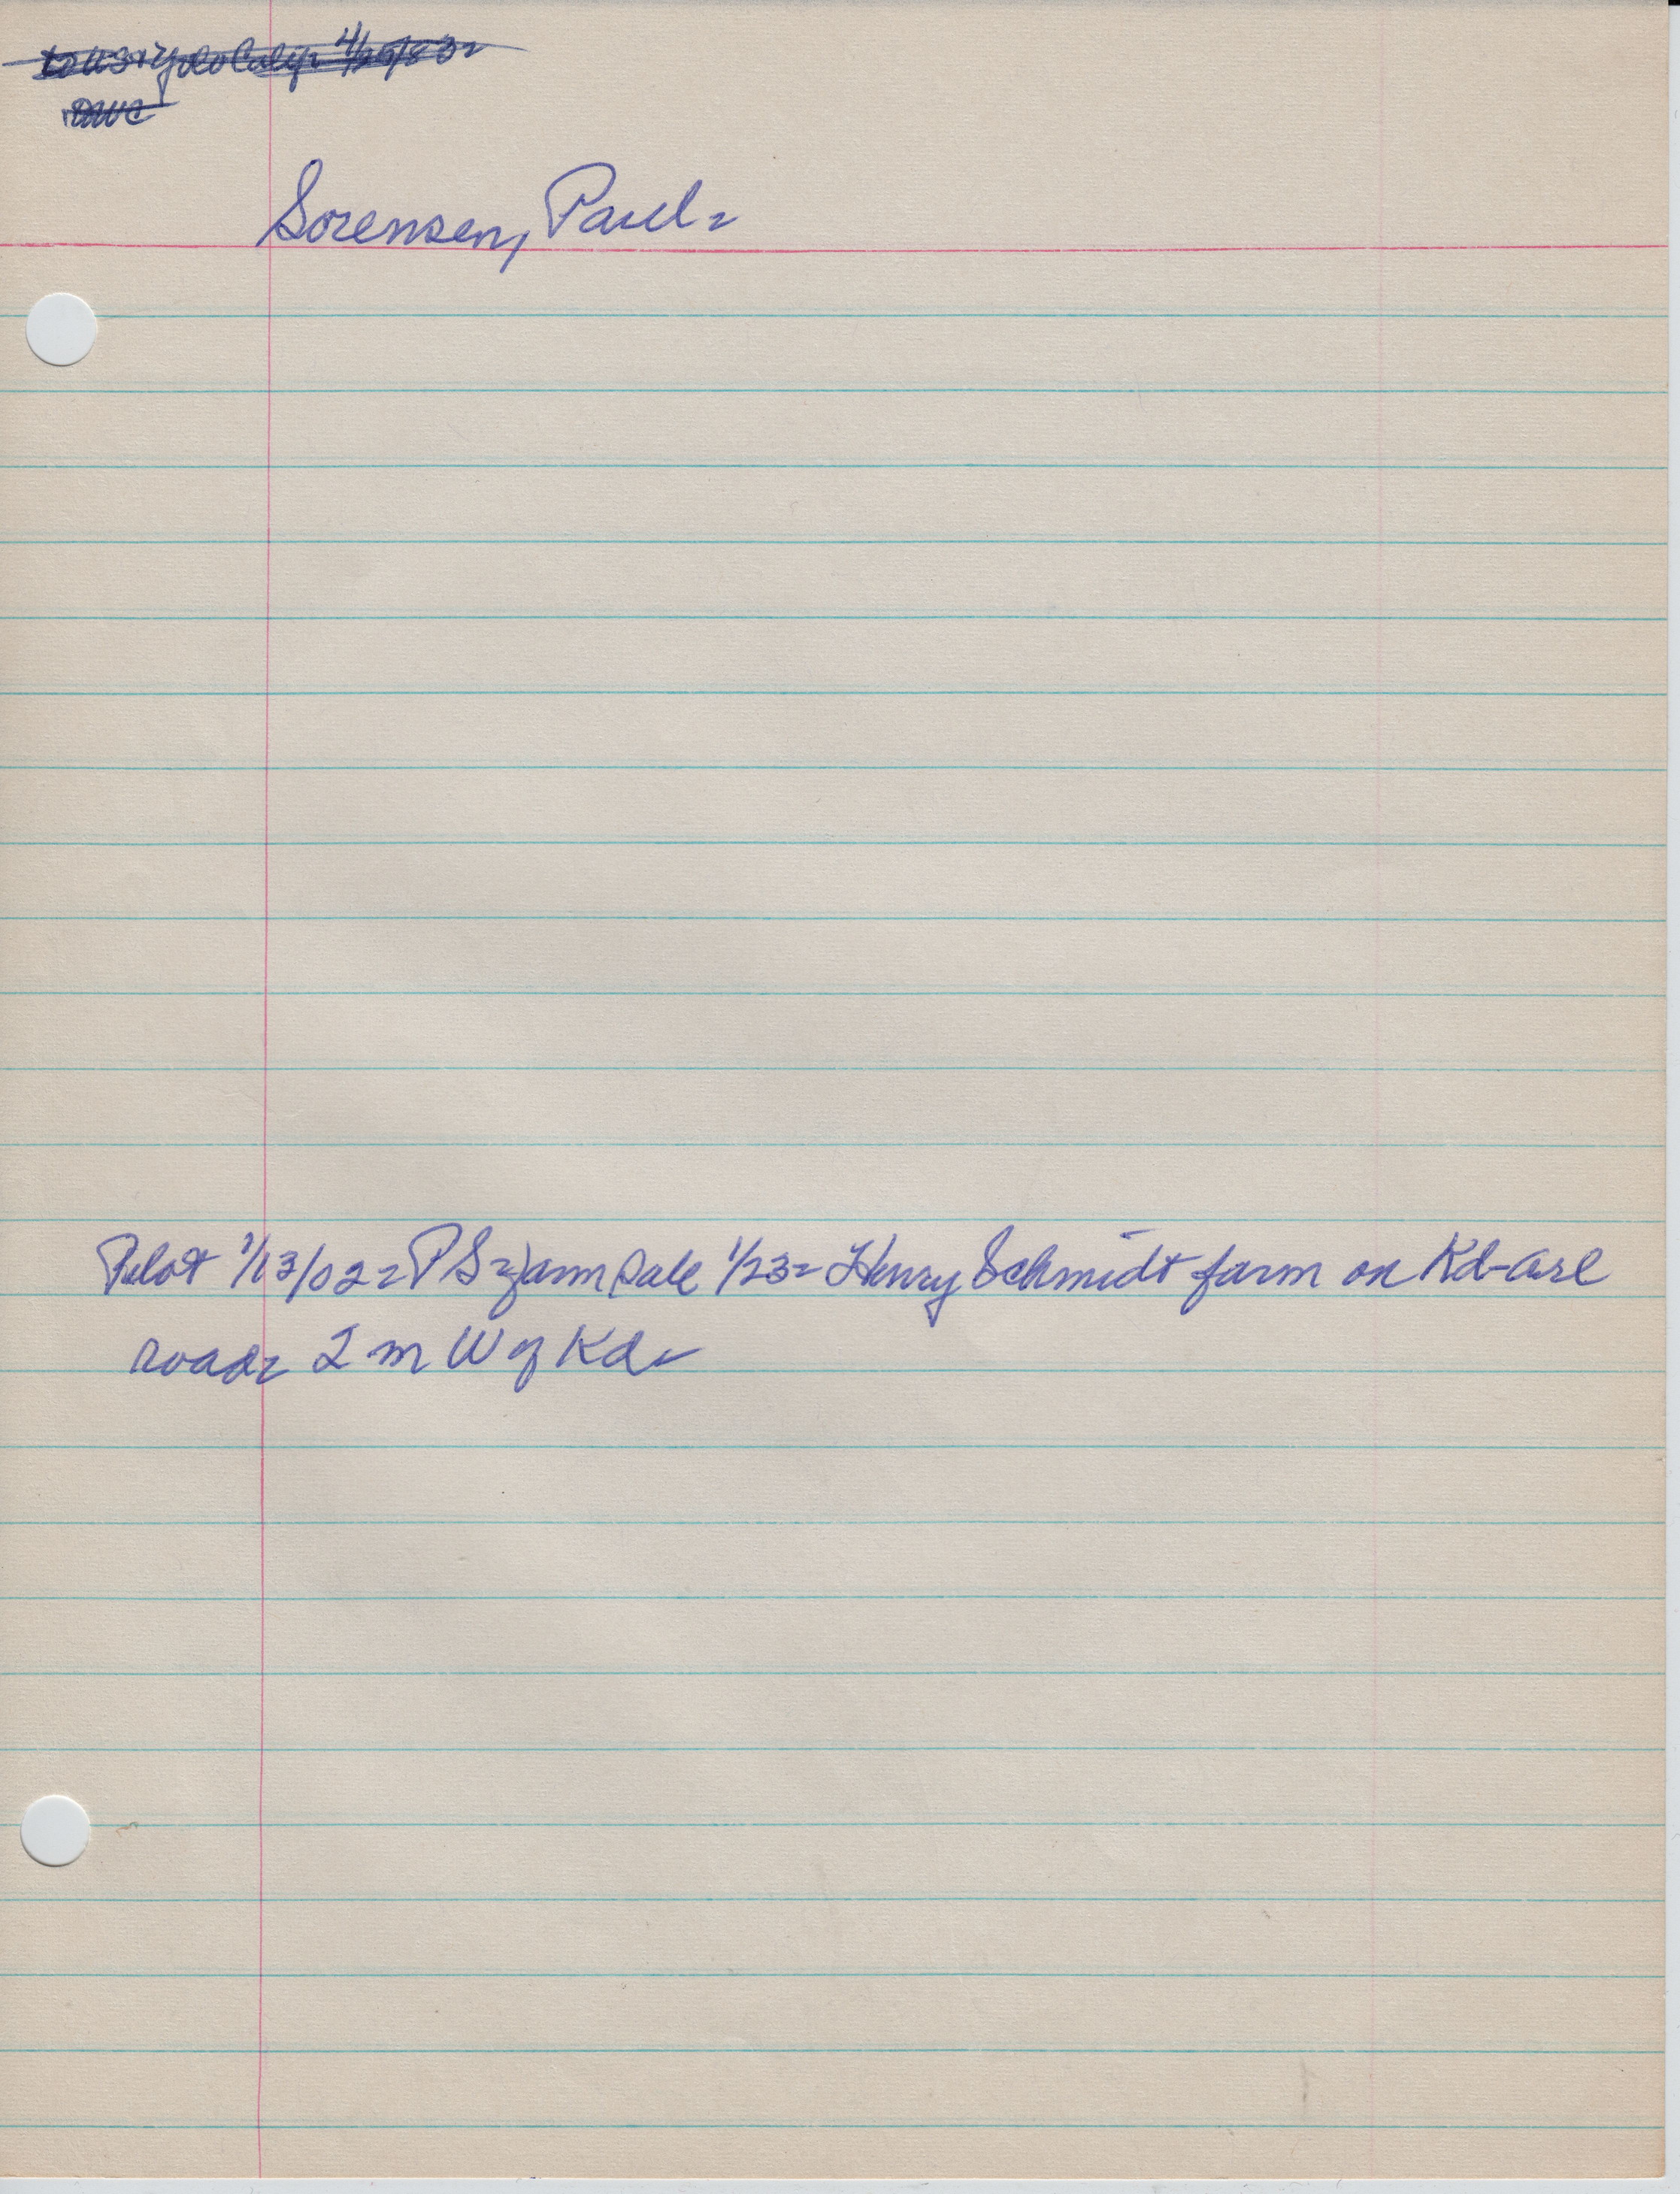 Sorensen, Paul-
Pilot 1/13/02- PS-farm sale 1/23- Henry Schmidt farm on Kd-Arl
road- 2 m W of Kd-